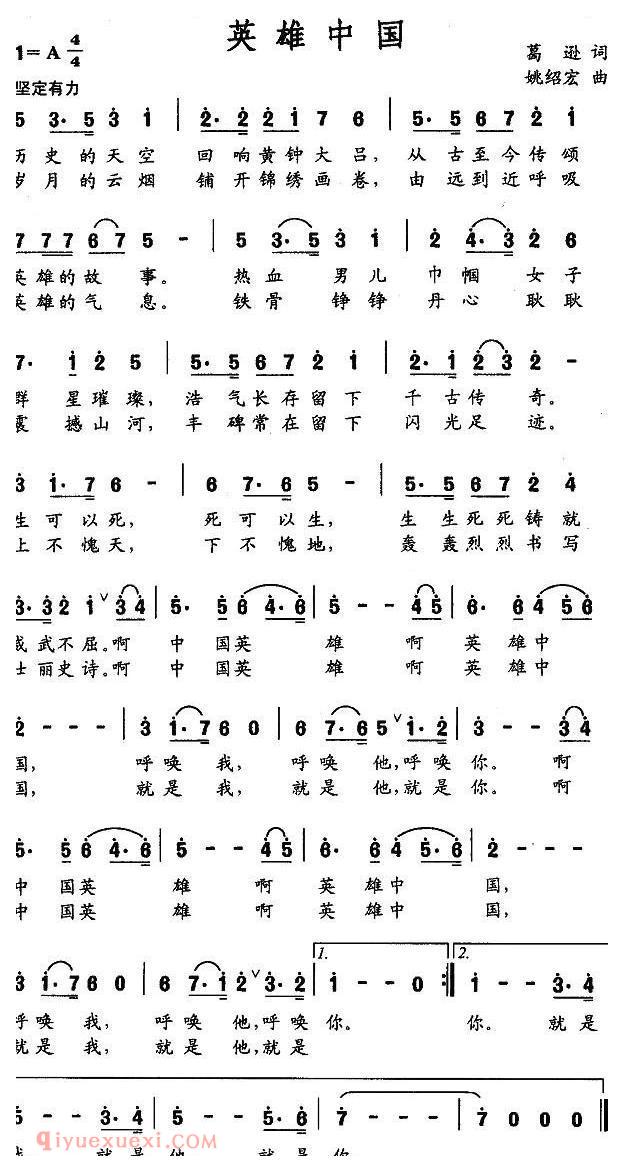 英雄中国
1=A 4/4
葛逊 词
坚定有力
姚绍宏 曲
5 3·5 3 1 | 2·2 2 1 7 6 | 5·5 6 7 2 1
历史的天空 回响黄钟大吕, 从古至今传颂
岁月的云烟 铺开锦绣画卷, 由远到近呼吸
7 7 7 6 7 5 - | 5 3·5 3 1 | 2 4·3 2 6
英雄的故事。 热血男儿巾帼女子
英雄的气息。 铁骨铮铮丹心耿耿
7· 1 2 5 | 5·5 6 7 2 1 | 2·1 2 3 2 -
群星璀璨, 浩气长存留下 千古传奇。
震撼山河, 丰碑常在留下 闪光足迹。
3 1·7 6 - | 6 7·6 5 - | 5·5 6 7 2 4
生可以死, 死可以生, 生生死死铸就
上不愧天, 下不愧地, 轰轰烈烈书写
3·3 2 1 ∨ 3 4 | 5· 5 6 4·6 | 5 - - 4 5 | 6· 6 4 5 6
威武不屈。啊 中国英 雄 啊 英雄中
壮丽史诗。啊 中国英 雄 啊 英雄中
2 - - - | 3 1·7 6 0 | 6 7·6 5 ∨ 1·2 | 3 - - 3 4
国, 呼唤我, 呼唤他,呼唤你。 啊
国, 就是我, 就是他,就是你。 啊
5· 5 6 4·6 | 5 - - 4 5 | 6· 6 4 5·6 | 2 - - -
中国英 雄 啊 英雄中 国,
中国英 雄 啊 英雄中 国,
1. 2.
3 1·7 6 0 | 6 7·1 2 ∨ 3·2 | 1 - - 0 :| 1 - - 3·4
呼唤我, 呼唤他,呼唤你。 你。 就是
就是我, 就是他,就是
5 - - 3·4 | 5 - - 3·5 | 7 - - - | 7 0 0 0 ‖
我, 就是他, 就是你。
qiyuexuexi.com